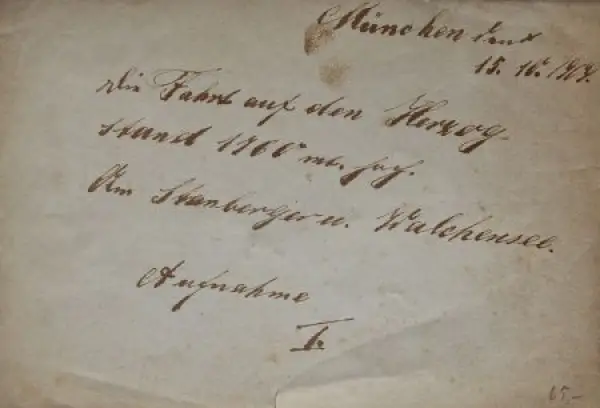 München
15. 10. 1904.
Die Fahrt auf den Herzog-
stand 1760 mt. hoch.
Am Starnberger u. Walchensee.
Aufnahme
I.
65,-